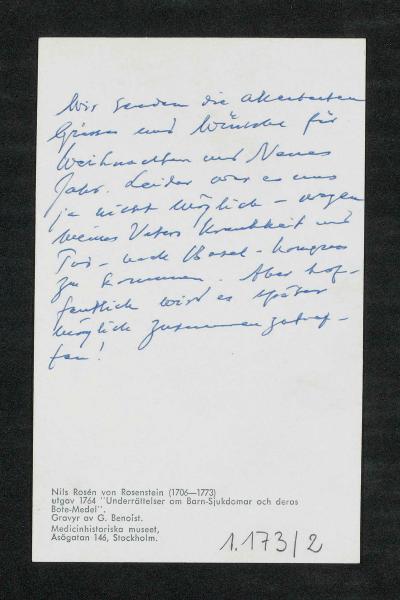 Wir senden die allerbesten
Grüsse und Wünsche für
Weihnachten und Neues
Jahr. Leider war es uns
ja nicht möglich – wegen
meines Vaters Krankheit und
Tod – nach Basel-Kongress
zu kommen. Aber hof-
fentlich wird es später
möglich zusammenzutref-
fen!
Nils Rosén von Rosenstein (1706—1773)
utgav 1764 "Underrättelser om Barn-Sjukdomar och deras
Bote-Medel".
Gravyr av G. Benoist.
Medicinhistoriska museet,
Åsögatan 146, Stockholm.
1.173/2